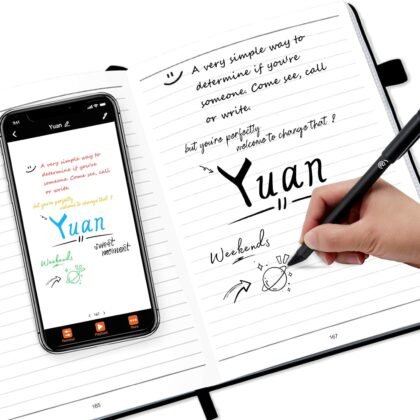 A very simple way to
determine if you're
someone. Come see, call
or write.
but you're perfectly
welcome to change that?
Yuan
Weekends
167
9:41
Yuan
A very simple way to
determine if you're
someone. Come see, call
or write.
but you're perfectly
welcome to change that?
Yuan
sweet
moment
Weekends
167
Playback
165